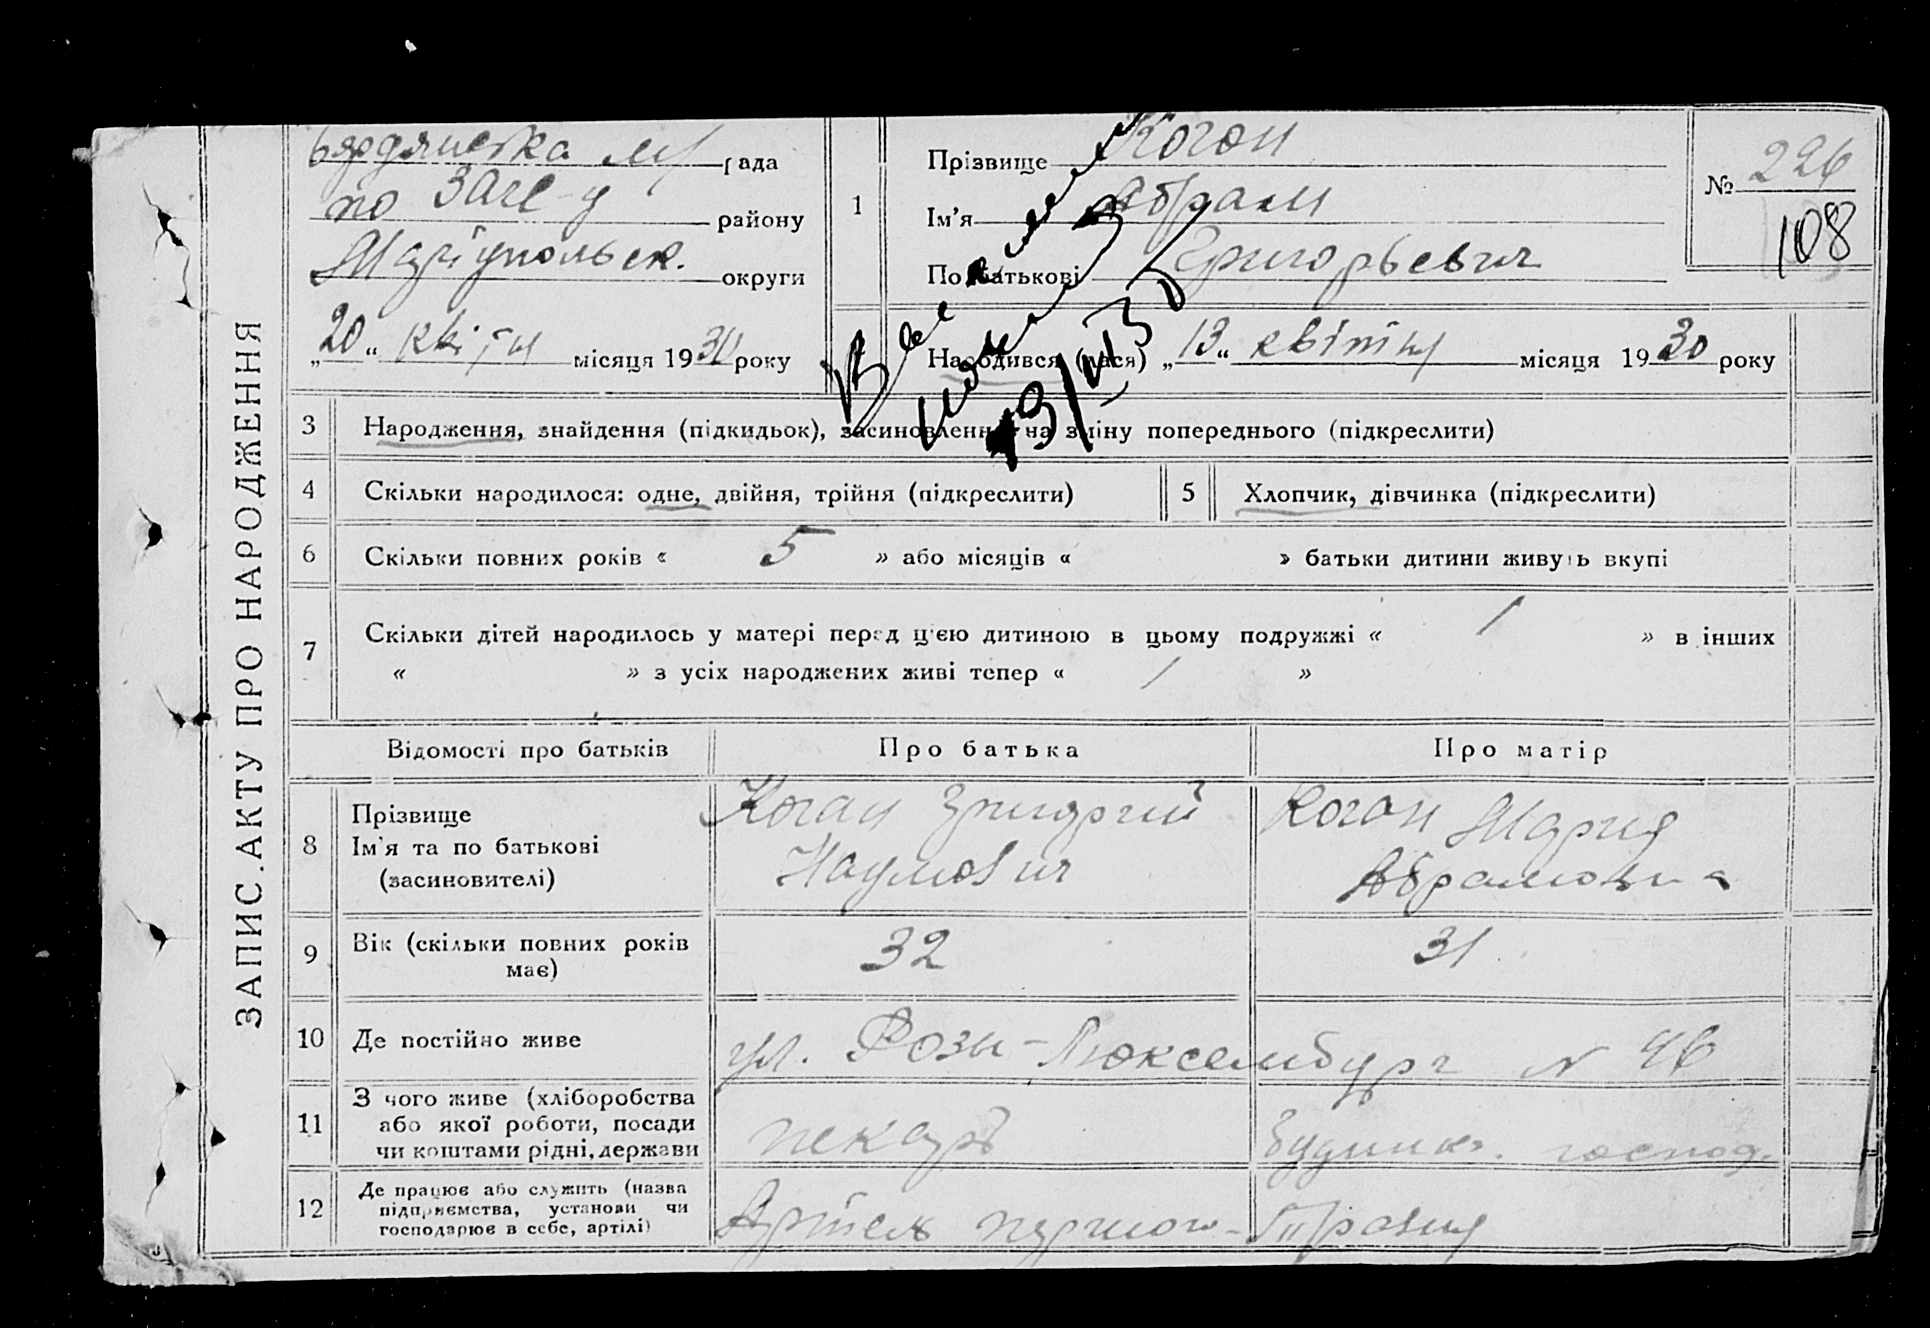 ЗАПИС АКТУ ПРО НАРОДЖЕННЯ
Бердянська м/рада
по ЗАГС-у району
Маріупольськ. округи
„20“ квітн місяця 1930 року
1
Прізвище Коган
Ім'я Абрам
По батькові Григорьевич
№ 226
108
Народився (лася) „13“ квітня місяця 1930 року
3 Народження, знайдення (підкидьок), засиновлення на зміну попереднього (підкреслити)
4 Скільки народилося: одне, двійня, трійня (підкреслити)
5 Хлопчик, дівчинка (підкреслити)
6 Скільки повних років « 5 » або місяців « » батьки дитини живуть вкупі
7 Скільки дітей народилось у матері перед цією дитиною в цьому подружжі « 1 » в інших
« » з усіх народжених живі тепер « 1 »
Відомості про батьків
Про батька
Про матір
8 Прізвище
Ім'я та по батькові
(засиновителі)
Коган Григорий
Наумович
Коган Мария
Абрамовна
9 Вік (скільки повних років
має)
32
31
10 Де постійно живе
ул. Розы-Люксембург N 46
11 З чого живе (хліборобства
або якої роботи, посади
чи коштами рідні, держави
пекарь
будинк. господ.
12 Де працює або служить (назва
підприємства, установи чи
господарює в себе, артілі)
Артель первого Травня